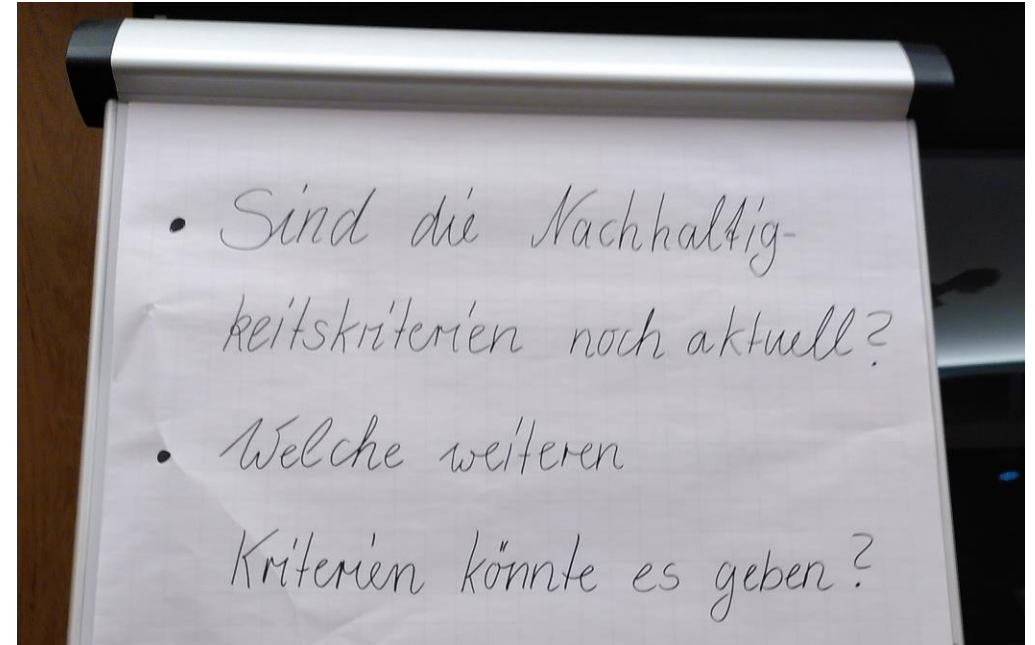 • Sind die Nachhaltig-
keitskriterien noch aktuell?
• Welche weiteren
Kriterien könnte es geben?